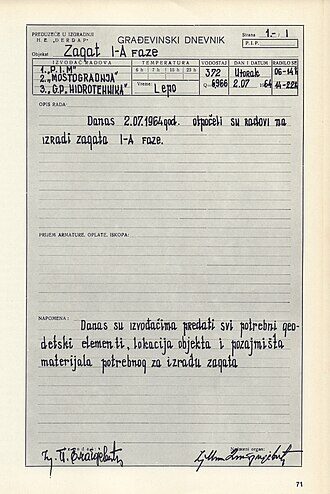 PREDUZEĆE U IZGRADNJI
H.E. „ĐERDAP"
GRAĐEVINSKI DNEVNIK
Strana 1.- 1
P.I.P.
Objekat Zagat I-A faze
IZVOĐAČ RADOVA
TEMPERATURA
VODOSTAJ
DAN I DATUM
RADILO SE
1. „P.I.M"
2. „MOSTOGRADNJA"
3. „G.P. HIDROTEHNIKA"
6 h 7 h 15 h 23 h
Vreme: Lepo
372
Q=6966
Utorak
2.07 64
06-14h
14-22h
OPIS RADA:
Danas 2.07.1964 god. otpočeli su radovi na
izradi zagata I-A faze.
PRIJEM ARMATURE, OPLATE, ISKOPA:
NAPOMENA:
Danas su izvođačima predati svi potrebni geo-
detski elementi, lokacija objekta i pozajmišta
materijala potrebnog za izradu zagata
Nadzorni organ:
71